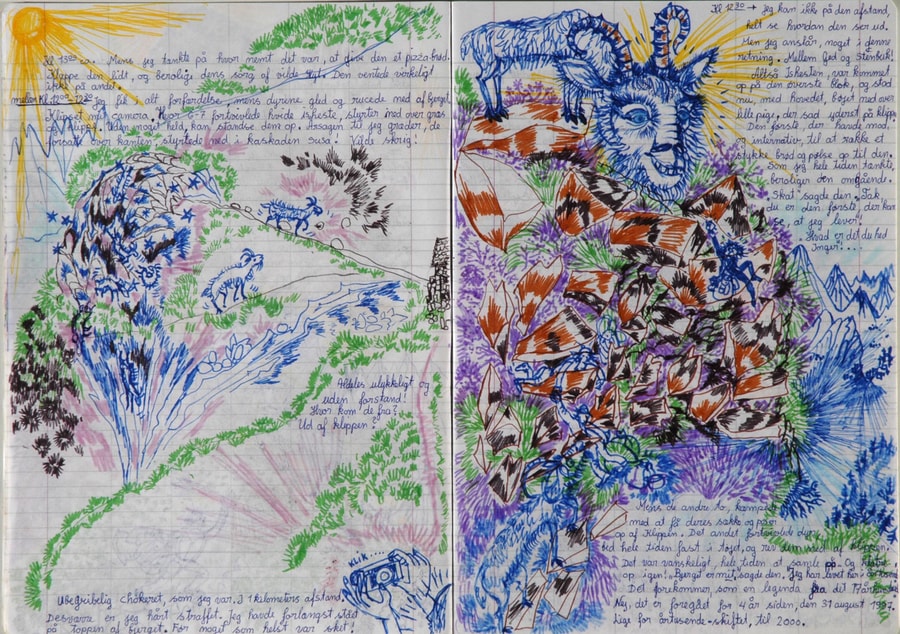 Kl 13⁰⁵ ca. Mens jeg tænkte på hvor nemt det var, at give den et pizza-brød.
Klappe den lidt, og berolige dens sorg af vild flugt. Den ventede virkeligt
ikke på andet.
mellem Kl. 12⁰⁰-12³⁰ Jeg fik alt forfærdelse, mens dyrene gled og rutcede ned af bjerget,
Klipset mit camera. Hvor 6-7 fortvivlede hvide isheste, styrter ned over græs
og klippe. Uden noget held, kan standse dem op. Årsagen til jeg græder, de
forsatte over kanten, styrtede ned i kaskaden Susa! Vilde skrig!
Aldeles ulykkeligt og
uden forstand!
Hvor kom de fra?
Ud af klippen?
KLIK....
Ubegribelig chokeret, som jeg var. I 1 kilometers afstand.
Desværre er jeg hårt straffet. Jeg havde forlængst stået
på toppen af bjerget. Før noget som helst var sket!
Kl 12³⁰ → Jeg kan ikke på den afstand,
helt se hvordan den ser ud.
Men jeg anslår, noget i denne
retning. Mellem Ged og Stenbuk!
Altså Ishesten, var kommet
op på den øverste blok, og stod
nu, med hovedet, bøjet ned over
lille pige, der sad yderst på klippen
Den første, der havde mod,
og initiativ, til at række et
stykke brød og pølse op til den.
Som jeg hele tiden tænkte,
beroliger den omgående.
Skat sagde den. Tak,
du er den første der kan
se, at jeg lever!
Hvad er det du hed
Inger....
Mens de andre to, kæmper
med at få deres sække og pæle
op af klippen. Det andet fortvivlede dyr,
bed hele tiden fast i tøjet, og rev dem ned af klippen.
Det var vanskeligt, hele tiden at samle på. Og klatre
op igen! Bjerget er mit, sagde den. Jeg har levet her
Det forekommer, som en legenda fra det
Nej, det er foregået for 4 år siden, den 31 august 1997.
Lige før årtusende-skiftet, til 2000.